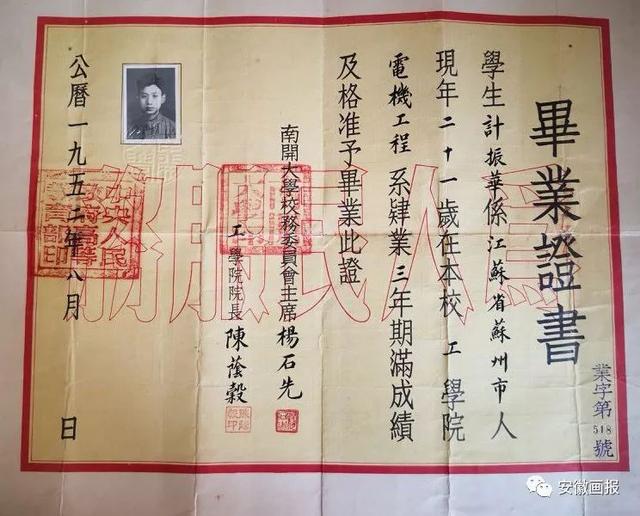 畢業證書
學生計振華係江蘇省蘇州市人
現年二十一歲在本校工學院
電機工程系肄業三年期滿成績
及格准予畢業此證
南開大學校務委員會主席楊石先
工學院院長陳蔭穀
公曆一九五二年八月 日
業字第518號
爲人民服務
中央人民政府高等教育部印
安徽画报